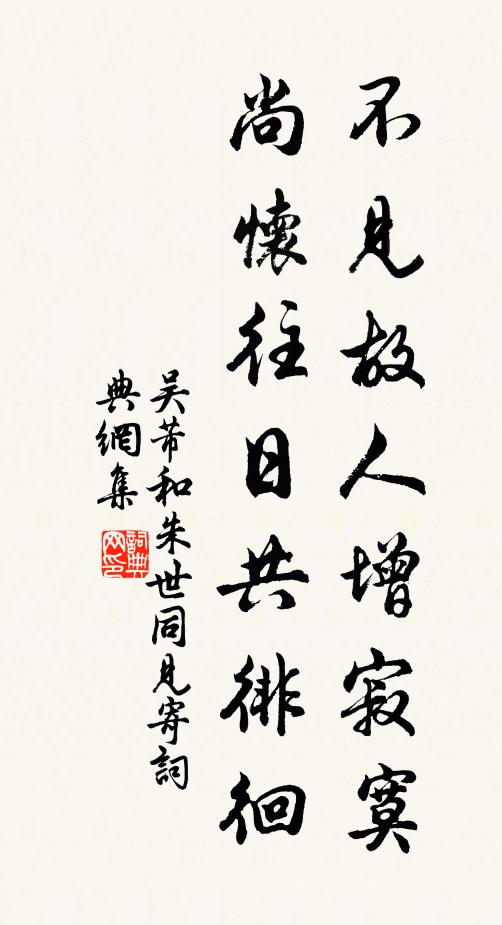 不見故人增寂寞
尚懷往日共徘徊
吴芾和朱世同見寄詞
典網集
詞典
网印